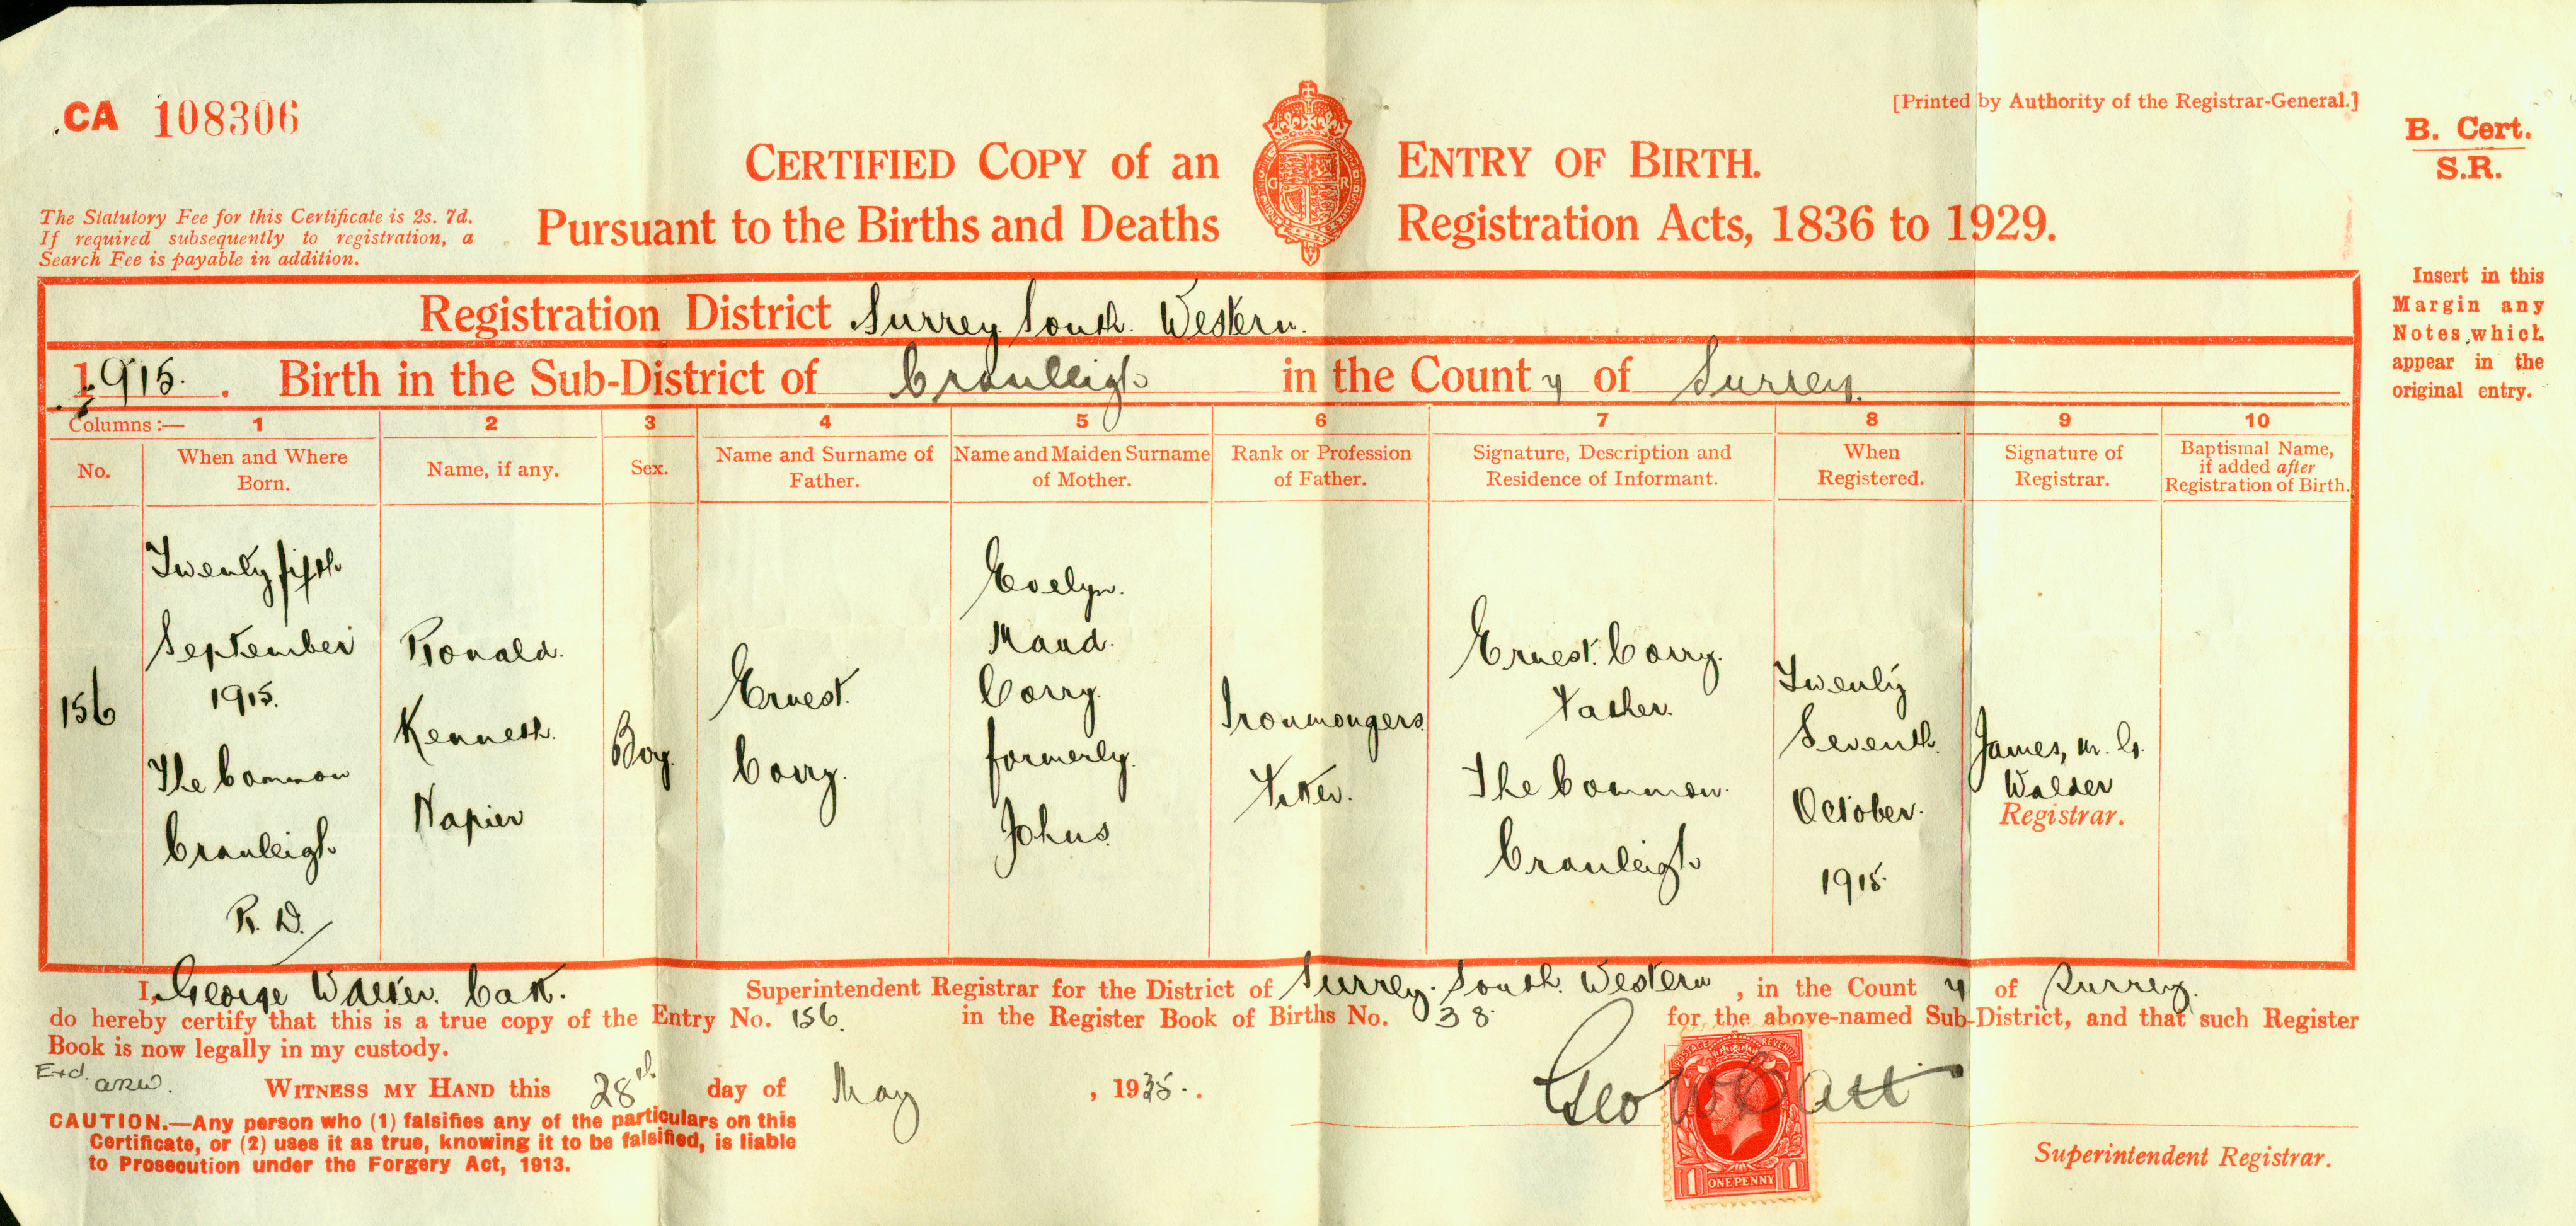 CA 108306
[Printed by Authority of the Registrar-General.]
B. Cert.
S.R.
CERTIFIED COPY of an ENTRY OF BIRTH.
Pursuant to the Births and Deaths Registration Acts, 1836 to 1929.
G R
The Statutory Fee for this Certificate is 2s. 7d.
If required subsequently to registration, a
Search Fee is payable in addition.
Insert in this
Margin any
Notes which
appear in the
original entry.
Registration District Surrey South Western.
1915. Birth in the Sub-District of Cranleigh in the County of Surrey.
Columns :— 1 2 3 4 5 6 7 8 9 10
No.
When and Where
Born.
Name, if any.
Sex.
Name and Surname of
Father.
Name and Maiden Surname
of Mother.
Rank or Profession
of Father.
Signature, Description and
Residence of Informant.
When
Registered.
Signature of
Registrar.
Baptismal Name,
if added after
Registration of Birth.
156
Twenty fifth
September
1915.
The Common
Cranleigh
R. D.
Ronald.
Kenneth.
Napier
Boy.
Ernest.
Corry.
Evelyn.
Maud.
Corry.
formerly.
Johns.
Ironmongers
Fitter.
Ernest. Corry.
Father.
The Common.
Cranleigh
Twenty
Seventh.
October.
1915.
James, M. G.
Walder
Registrar.
I, George Walter. Catt. Superintendent Registrar for the District of Surrey. South. Western, in the County of Surrey.
do hereby certify that this is a true copy of the Entry No. 156. in the Register Book of Births No. 38. for the above-named Sub-District, and that such Register
Book is now legally in my custody.
Exd.
WITNESS MY HAND this 28th day of May, 1935.
Geo W Catt
POSTAGE REVENUE
1 ONE PENNY 1
Superintendent Registrar.
CAUTION.—Any person who (1) falsifies any of the particulars on this
Certificate, or (2) uses it as true, knowing it to be falsified, is liable
to Prosecution under the Forgery Act, 1913.